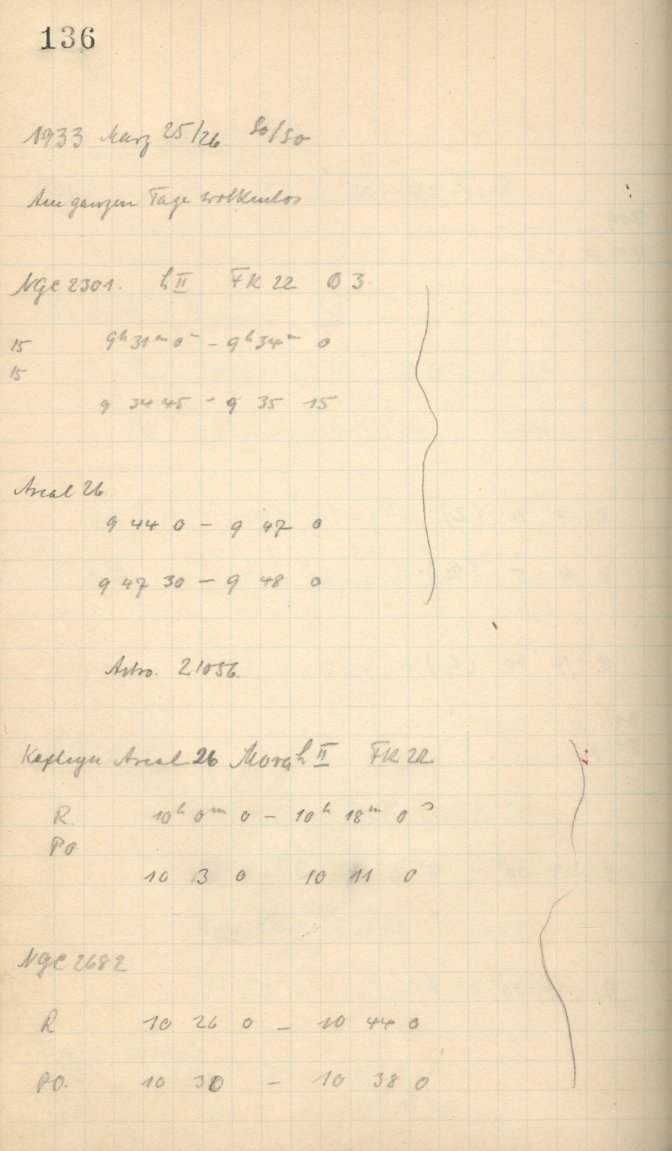 136
1933 März 25/26 So/So
Am ganzen Tage wolkenlos
NGC 2301. h II FK 22 B 3
15 9h 31m 0s – 9h 34m 0
15
9 34 45 – 9 35 15
Areal 26
9 44 0 – 9 47 0
9 47 30 – 9 48 0
Astro. 21056
Kapteyn Areal 26 h II FK 22
R. 10h 0m 0 – 10h 18m 0s
PO
10 3 0 10 11 0
NGC 2682
R 10 26 0 – 10 44 0
PO. 10 30 – 10 38 0